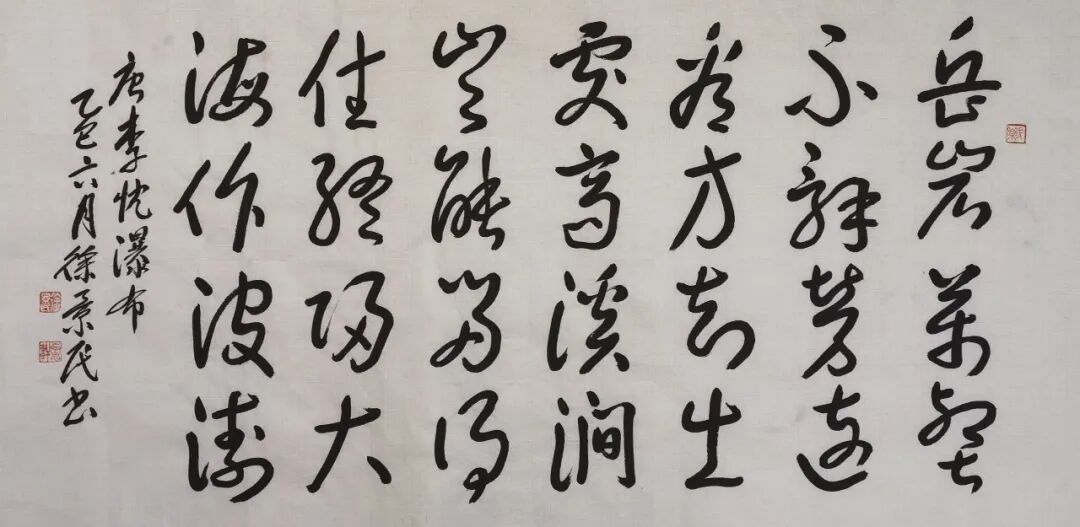 岳岩萬壑
不辞劳远
看方知出
處高溪澗
岂能留得
住终归大
海作波涛
唐李忱瀑布
乙巳六月徐景民书